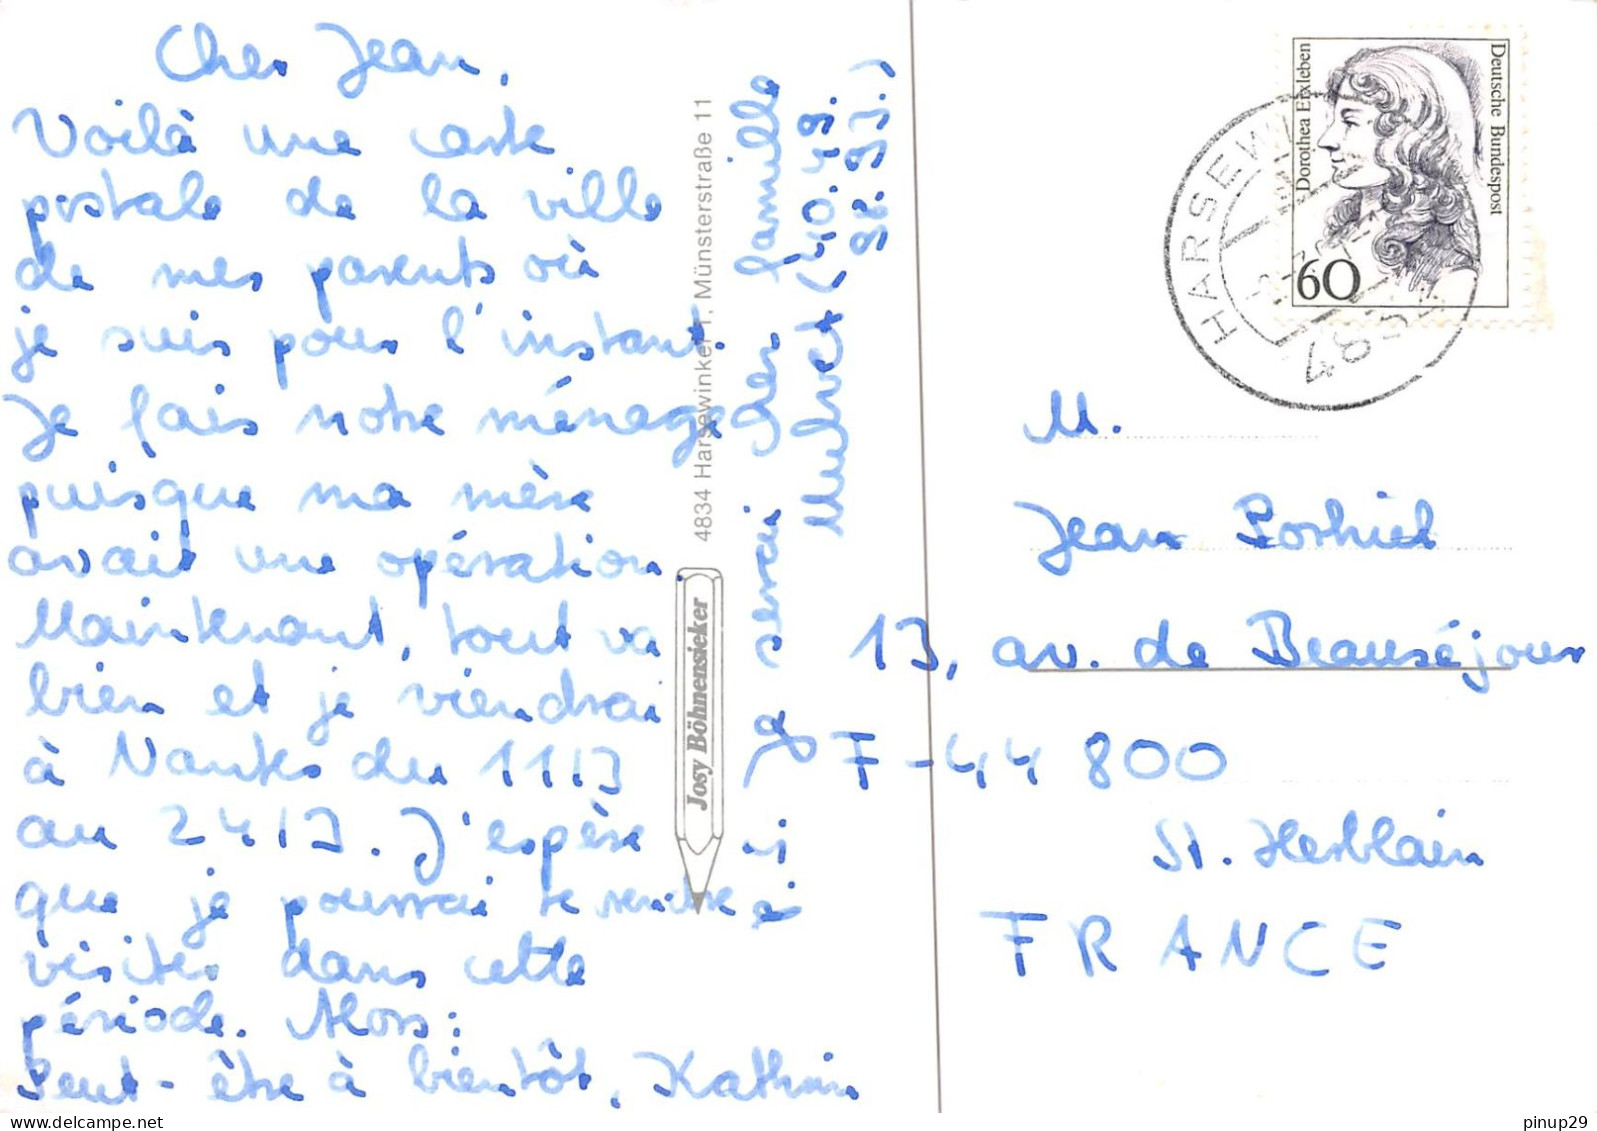 Cher Jean,
Voilà une carte
postale de la ville
de mes parents où
je suis pour l'instant.
Je fais notre ménage
puisque ma mère
avait une opération.
Maintenant, tout va
bien et je viendrai
à Nantes du 11/3
au 24/3. J'espère
que je pourrai te rendre
visites dans cette
période. Alors:
Peut-être à bientôt, Kathrin
Je serai chez famille
4834 Harsewinkel 1, Münsterstraße 11
Josy Böhnensieker
Deutsche Bundespost
Dorothea Erxleben
60
HARSEWINKEL
M.
Jean
13, av. de Beauséjour
F-44 800
St. Herblain
FRANCE
pinup29